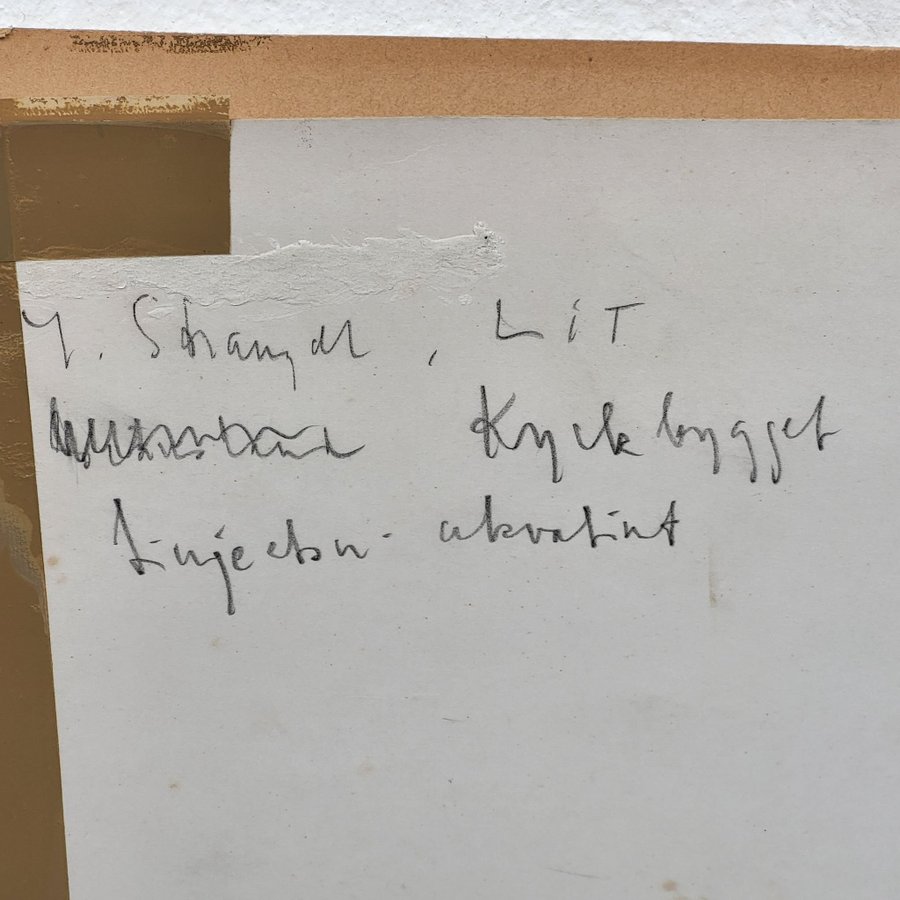 Y. Strandh, LIT
Kyrkbygget
Linjeetsn. akvatint